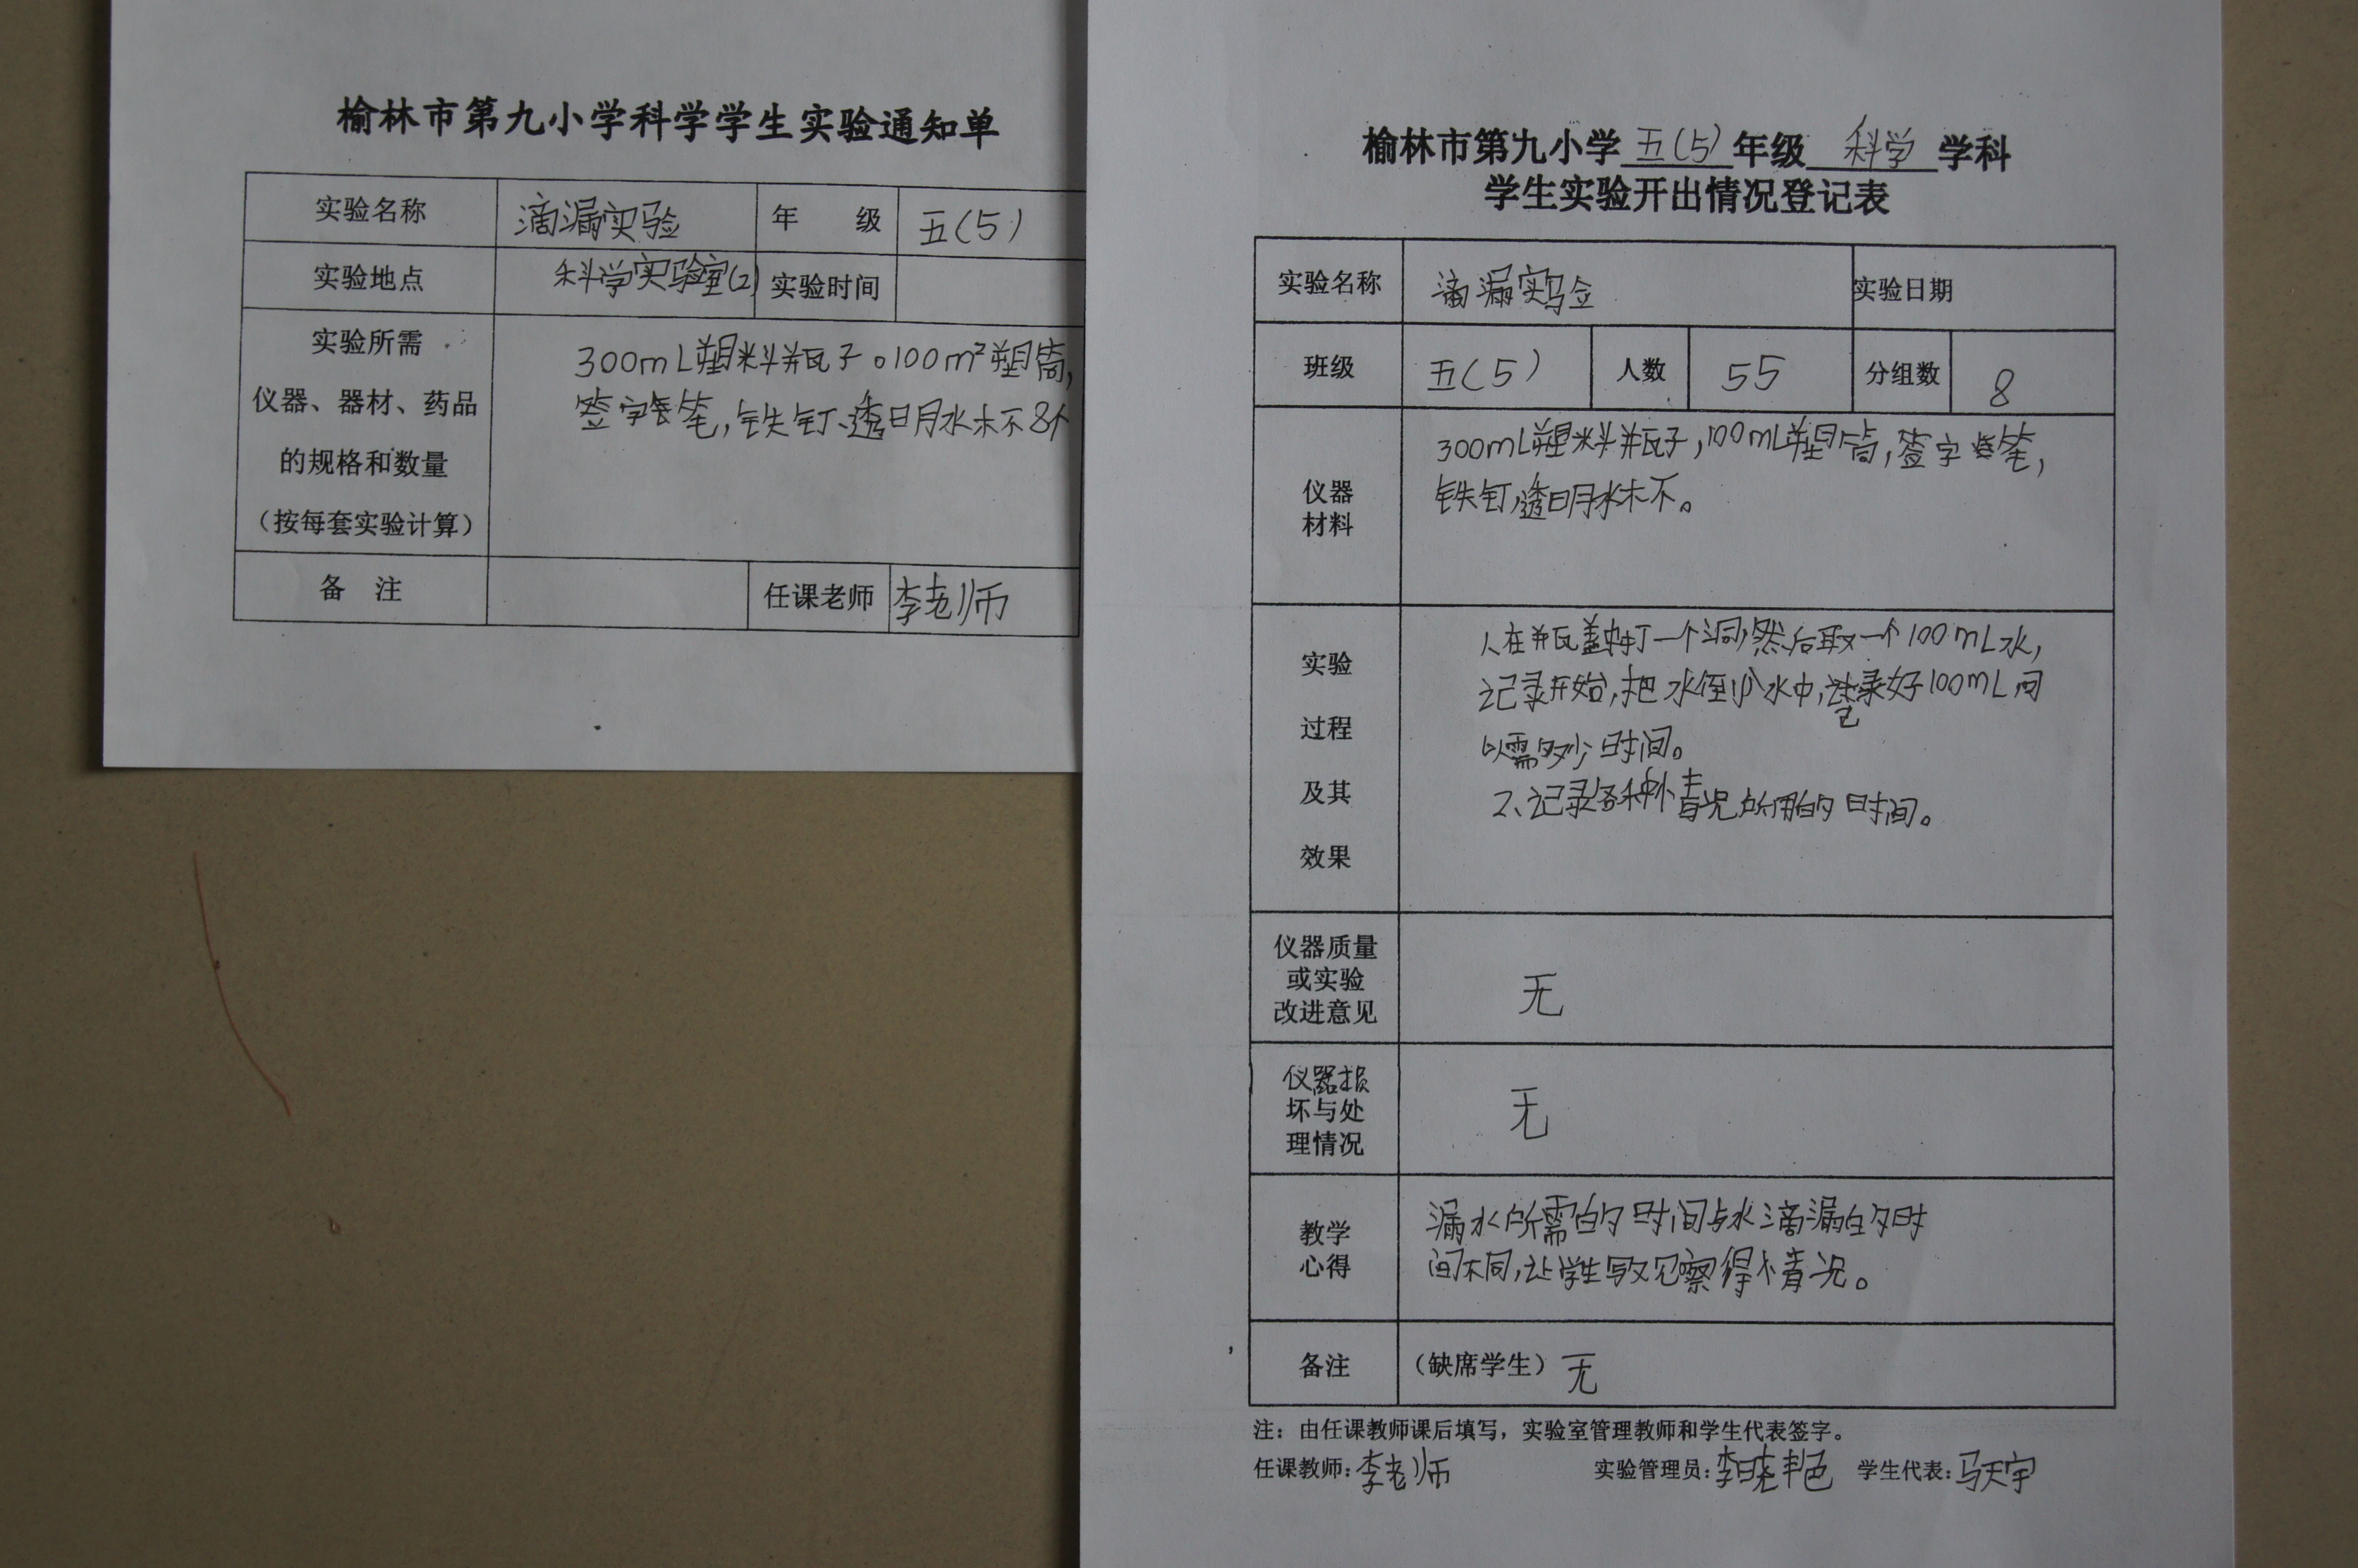 榆林市第九小学科学学生实验通知单
实验名称 滴漏实验 年 级 五(5)
实验地点 科学实验室(2) 实验时间
实验所需
仪器、器材、药品
的规格和数量
(按每套实验计算)
300mL塑料瓶子。100m²塑筒,
签字笔,铁钉、透明水杯8个
备 注 任课老师 李老师
榆林市第九小学五(5)年级 科学 学科
学生实验开出情况登记表
实验名称 滴漏实验 实验日期
班级 五(5) 人数 55 分组数 8
仪器
材料
300mL塑料瓶子,100mL塑筒,签字笔,
铁钉,透明水杯。
实验
过程
及其
效果
1、在瓶盖钻一个洞,然后取一个100mL水,
记录开始,把水倒水中,记录好100mL间
以需多少时间。
2、记录各种情况所用的时间。
仪器质量
或实验
改进意见
无
仪器损
坏与处
理情况
无
教学
心得
漏水所需的时间与水滴漏的时
间不同,让学生写观察得情况。
备注 (缺席学生) 无
注:由任课教师课后填写,实验室管理教师和学生代表签字。
任课教师:李老师 实验管理员:李晓艳 学生代表:马天宇